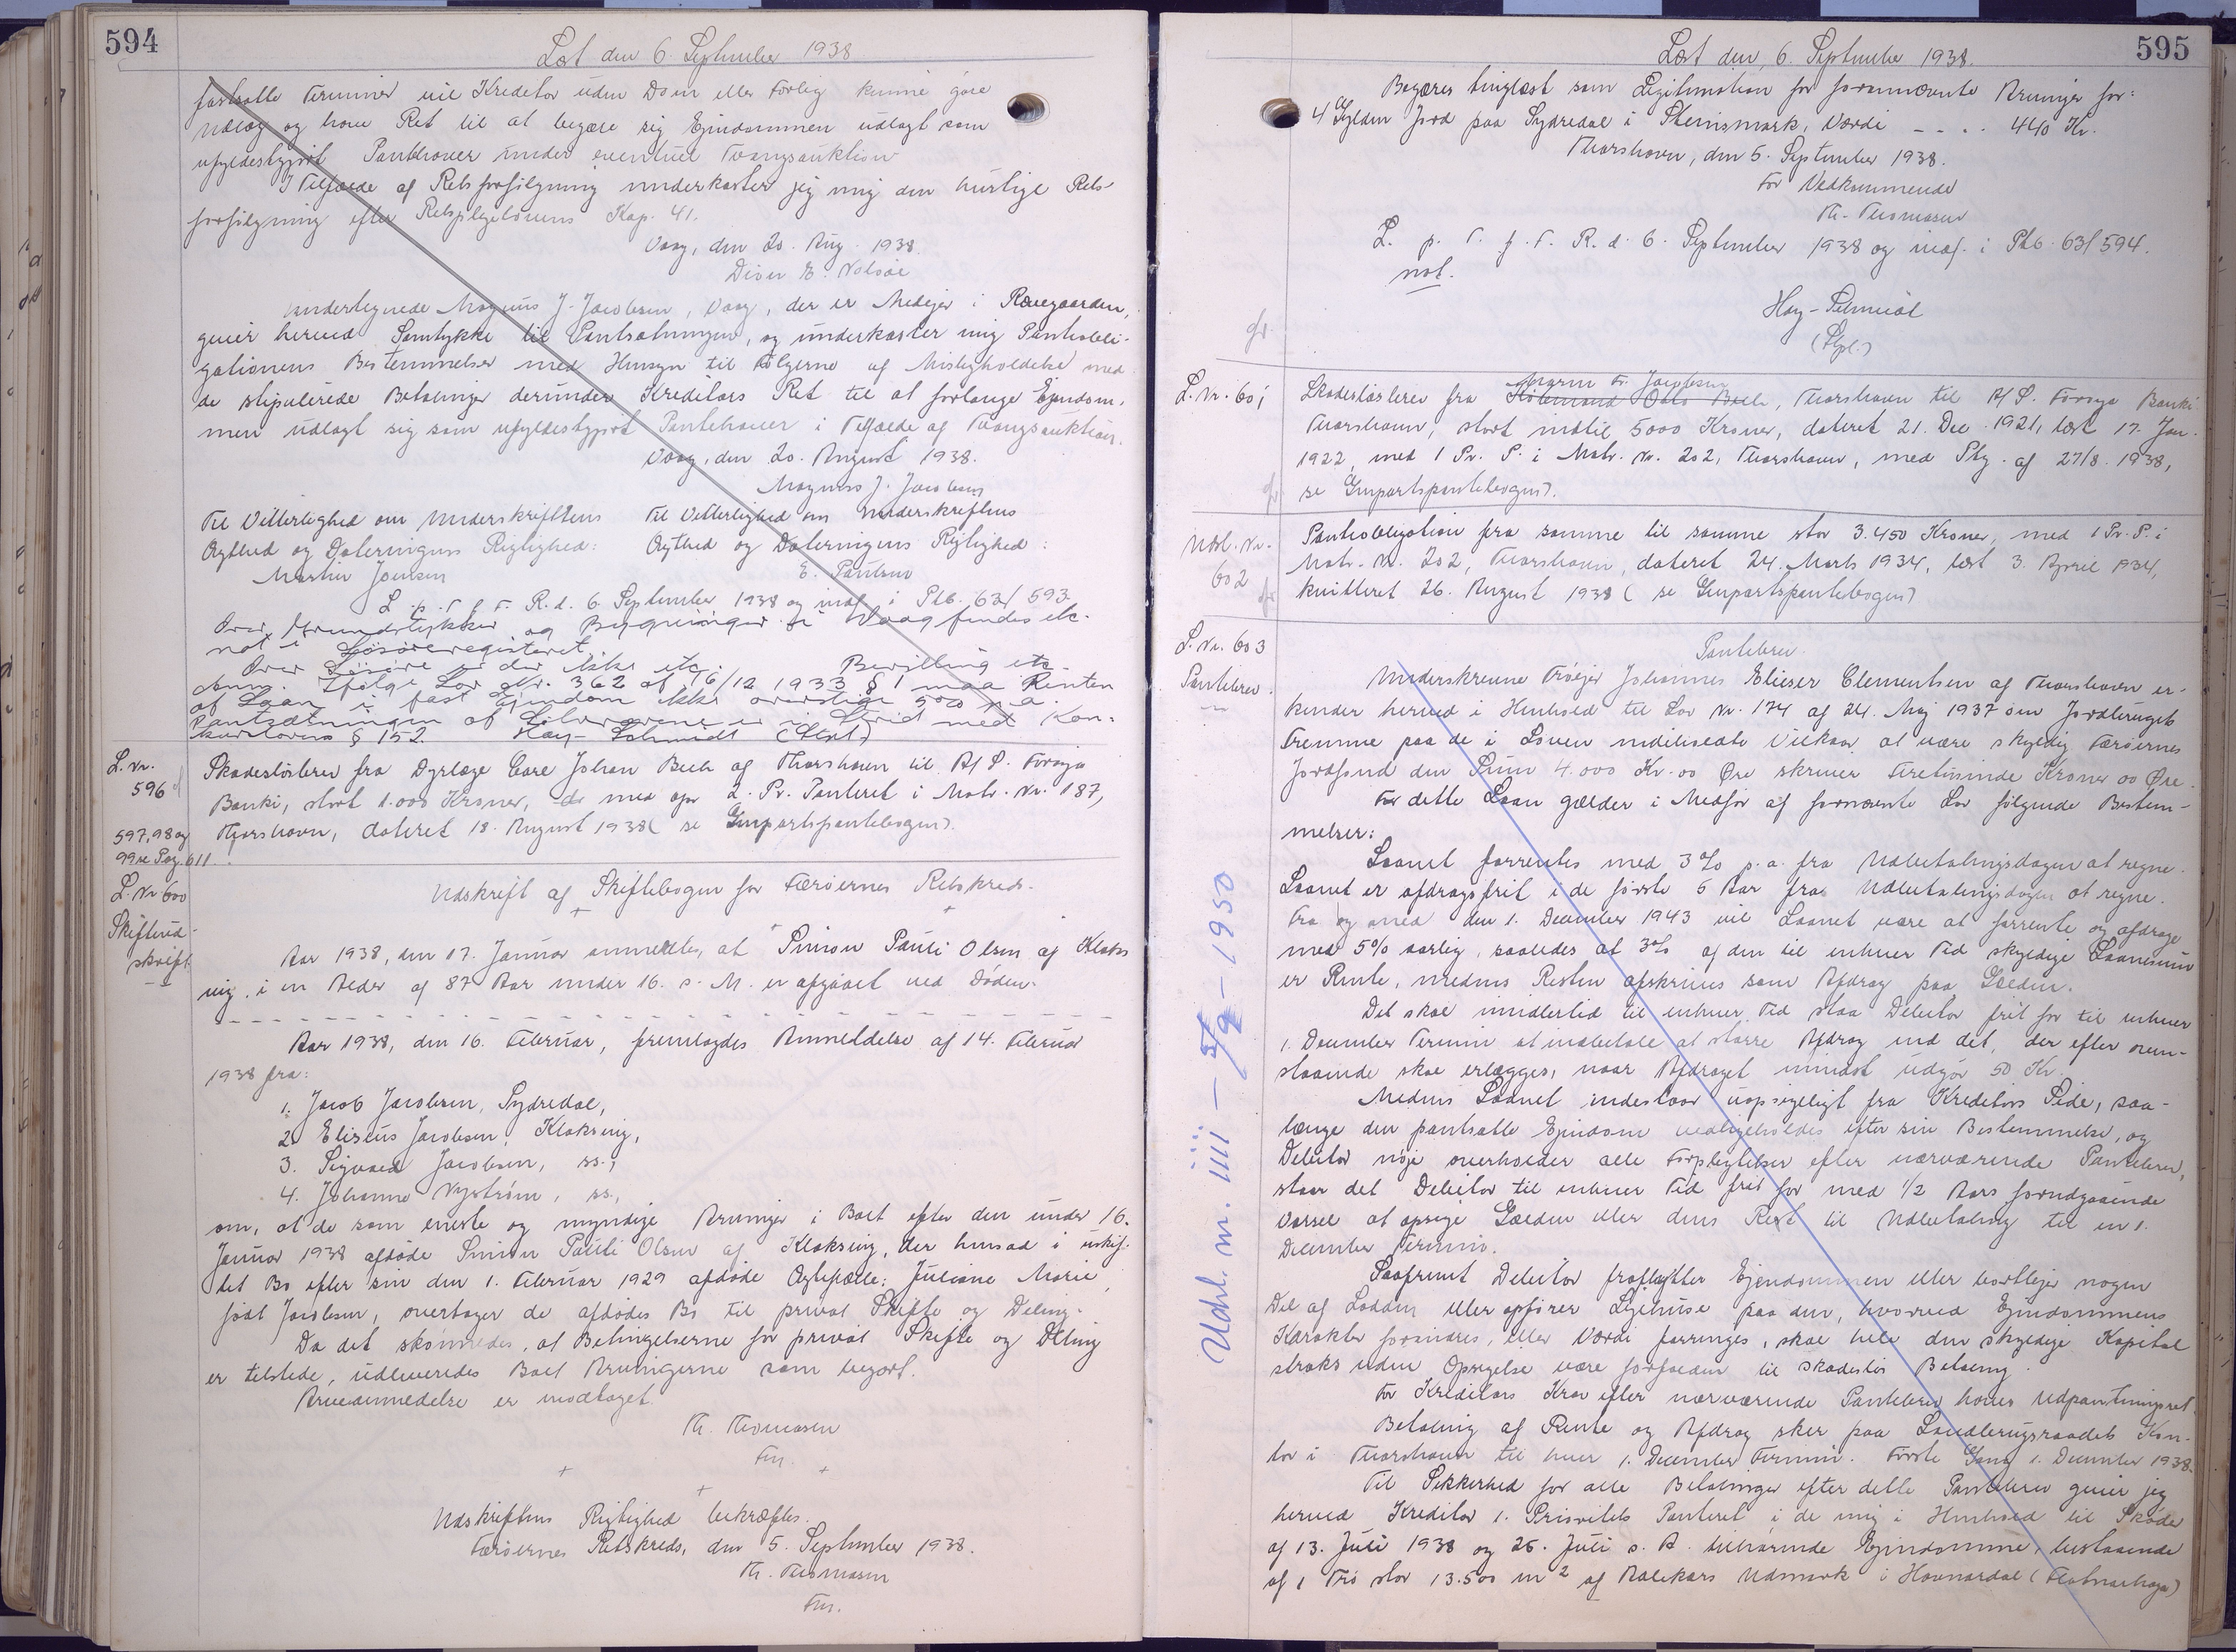 594
Læst den 6. September 1938
fastsatte Terminer vil Kreditor uden Dom eller Forlig kunne gøre
Udlæg og have Ret til at begære sig Ejendommen udlagt som
ufyldestgjort Panthaver under eventuel Tvangsauktion
I Tilfælde af Retsforfølgning underkaster jeg mig den hurtige Rets-
forfølgning efter Retsplejelovens Kap. 41.
Vaag, den 20. Aug. 1938.
E. Nolsøe
Undertegnede Magnus J. Jacobsen, Vaag, der er Medejer i
giver herved Samtykke til Pantsætningen, og underkaster mig Pantobli-
gationens Bestemmelser med Hensyn til Følgerne af Misligholdelse med
de stipulerede Betalinger derunder Kreditors Ret til at forlange Ejendom-
men udlagt sig som ufyldestgjort Panthaver i Tilfælde af Tvangsauktion.
Vaag, den 20. August 1938.
Magnus J. Jacobsen
Til Vitterlighed om Underskriftens
Ægthed og Dateringens Rigtighed:
Martin Joensen
Til Vitterlighed om Underskriftens
Ægthed og Dateringens Rigtighed:
E. Poulsen
L. p. T. f. F. R. d. 6. September 1938 og indf. i Ptb. 63/593.
Over Grundstykker og Bygninger i Vaag findes etc.
not i Løsøreregisteret.
Over Løsøre er der ikke etc. Bevilling etc.
Anm. Ifølge Lov Nr. 362 af 16/12 1933 § 1 maa Renten
af Laan i fast Ejendom ikke overstige 5% p.a.
Pantsætningen af er i Strid med Kon-
kurslovens § 152. Høy-Schmidt (Stpl.)
L. Nr.
596
Skadesløsbrev fra Dyrlæge Carl Johan Bech af Thorshavn til A/S. Føroya
Banki, stort 1.000 Kroner, med opr 2. Pr. Panteret i Matr. Nr. 187,
Thorshavn, dateret 18. August 1938 (se Genpartspantebogen).
597, 98 og
99 se Pag. 611.
L. Nr 600
Skifteud-
skrift
Udskrift af Skiftebogen for Færøernes Retskreds.
Aar 1938, den 17. Januar anmeldtes, at Simon Pauli Olsen af Klaks
vig, i en Alder af 87 Aar under 16. s. M. er afgaaet ved Døden.
Aar 1938, den 16. Februar, fremlagdes Anmeldelse af 14. Februar
1938 fra:
1. Jacob Jacobsen, Sydredal,
2. Elisæus Jacobsen, Klaksvig,
3. Sigvald Jacobsen, ss.,
4. Johanna Nyström, ss.,
om, at de som eneste og myndige Arvinger i Boet efter den under 16.
Januar 1938 afdøde Simon Pauli Olsen af Klaksvig, der hensad i uskif-
tet Bo efter sin den 1. Februar 1929 afdøde Ægtefælle: Juliane Marie,
født Jacobsen, overtager de afdødes Bo til privat Skifte og Deling.
Da det skønnedes, at Betingelserne for privat Skifte og Deling
er tilstede, udleveredes Boet Arvingerne som begært.
Arveanmeldelse er modtaget.
Th. Thomasen
Fm.
Udskriftens Rigtighed bekræftes.
Færøernes Retskreds, den 5. September 1938.
Th. Thomasen
Fm.
595
Læst den, 6. September 1938.
Begæres tinglæst som Legitimation for forannævnte Arvinger for:
4 Gylden Jord paa Sydredal i Steinsmark, Værdi - - . . 440 Kr.
Thorshavn, den 5. September 1938.
For Vedkommende
Th. Thomasen
L. p. T. f. F. R. d. 6. September 1938 og indf. i Ptb. 63/594.
not.
Høy-Schmidt
(Stpl.)
L. Nr. 601
Maren Fr. Jacobsen
Skadesløsbrev fra Købmand Otto Bech, Thorshavn til A/S. Føroya Banki
Thorshavn, stort indtil 5000 Kroner, dateret 21. Dec. 1921, læst 17. Jan.
1922, med 1 Pr. P. i Matr. Nr. 202, Thorshavn, med Ptg. af 27/8. 1938,
se Genpartspantebogen).
Udsl. Nr.
602
Pantobligation fra samme til samme stor 3.450 Kroner, med 1 Pr. P. i
Matr. Nr. 202, Thorshavn, dateret 24. Marts 1934, læst 3. April 1934,
kvitteret 26. August 1938 (se Genpartspantebogen)
L. Nr. 603
Pantebrev.
Pantebrev.
Underskrevne Trøejer Johannes Elieser Clementsen af Thorshavn er-
kender herved i Henhold til Lov Nr. 174 af 24. Maj 1937 om Jordbrugets
Fremme paa de i Loven indeholdte Vilkaar at være skyldig Færøernes
Jordfond den Sum 4.000 Kr. 00 Øre skriver Firetusinde Kroner 00 Øre.
For dette Laan gælder i Medfør af fornævnte Lov følgende Bestem-
melser:
Laanet forrentes med 3% p.a. fra Udbetalingsdagen at regne.
Laanet er afdragsfrit i de første 5 Aar fra Udbetalingsdagen at regne.
Fra og med den 1. December 1943 vil Laanet være at forrente og afdrage
med 5% aarlig, saaledes at 3% af den til enhver Tid skyldige Laanesum
er Rente, medens Resten afskrives som Afdrag paa Gælden.
Det skal imidlertid til enhver Tid staa Debitor frit for til enhver
1. December Termin at indbetale et større Afdrag end det, der efter oven-
staaende skal erlægges, naar Afdraget mindst udgør 50 Kr.
Medens Laanet indestaar uopsigeligt fra Kreditors Side, saa-
længe den pantsatte Ejendom vedligeholdes efter sin Bestemmelse, og
Debitor nøje overholder alle Forpligtelser efter nærværende Pantebrev,
staar det Debitor til enhver Tid frit for med 1/2 Aars forudgaaende
Varsel at opsige Gælden eller dens Rest til Udbetaling til en 1.
December Termin.
Saafremt Debitor fraflytter Ejendommen eller bortlejer nogen
Del af Lodden eller opfører Lejehuse paa den, hvorved Ejendommens
Karakter forandres, eller Værdi forringes, skal hele den skyldige Kapital
straks uden Opsigelse være forfalden til skadesløs Betaling.
For Kreditors Krav efter nærværende Pantebrev haves Udpantningsret.
Betaling af Rente og Afdrag sker paa Landbrugsraadets Kon-
tor i Thorshavn til hver 1. December Termin. Første Gang 1. December 1938.
Til Sikkerhed for alle Betalinger efter dette Pantebrev giver jeg
herved Kreditor 1. Prioritets Panteret i de mig i Henhold til Skøder
af 13. Juli 1938 og 26. Juli s. A. tilhørende Ejendomme, bestaaende
af 1 Trø stor 13.500 m² af Aalekærs Udmark i Havnardal
Udsl. nr. 1111 - 5/9 - 1950